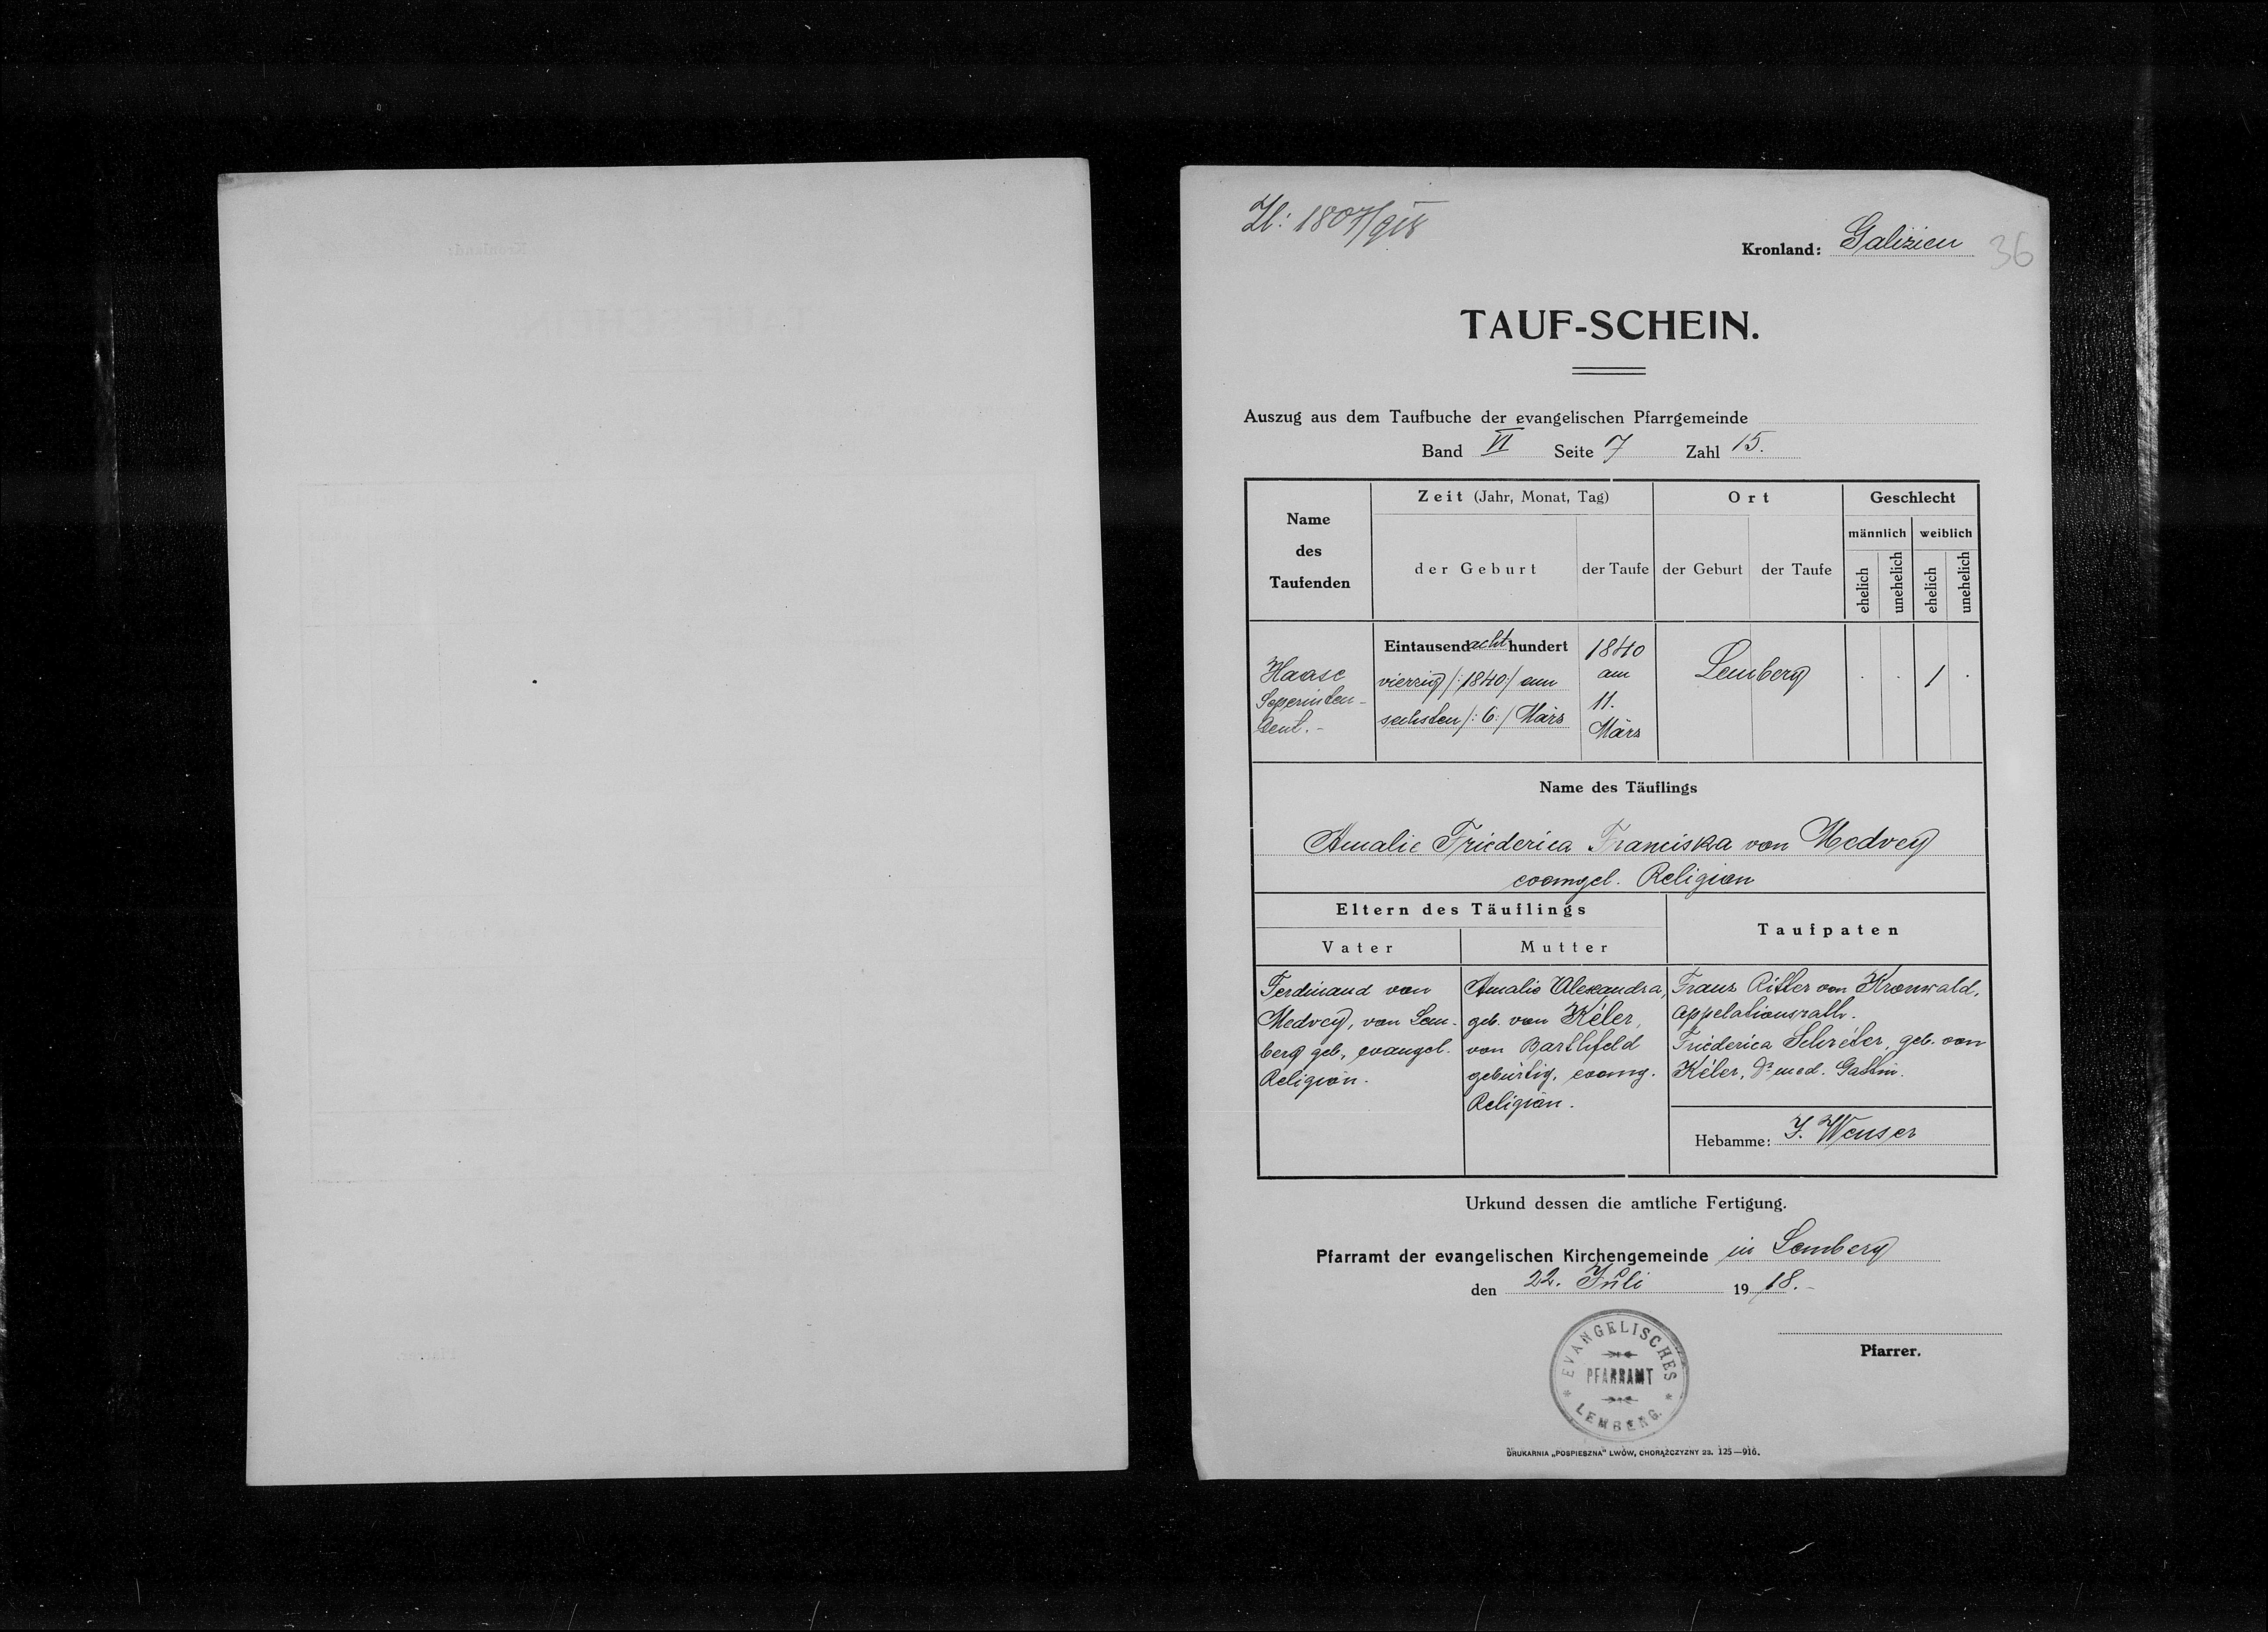 Zl: 1807/918
Kronland: Galizien 36
TAUF-SCHEIN.
Auszug aus dem Taufbuche der evangelischen Pfarrgemeinde
Band VI Seite 7 Zahl 15.
Name
des
Taufenden
Zeit (Jahr, Monat, Tag)
der Geburt
der Taufe
Ort
der Geburt
der Taufe
Geschlecht
männlich
weiblich
ehelich
unehelich
ehelich
unehelich
Haase
Seperinten-
dent.-
Eintausend acht hundert
vierzig /:1840:/ am
sechsten /: 6:/ März
1840
am
11.
März
Lemberg
. . 1 .
Name des Täuflings
Amalie Friederica Franciska von Medvey
evangel. Religion
Eltern des Täuflings
Vater
Mutter
Taufpaten
Ferdinand von
Medvey, von Lem-
berg geb., evangel.
Religion.
Amalie Alexandra,
geb. von Kéler,
von Barthfeld
gebürtig, evang.
Religion.
Franz Ritter von Kronwald,
Appelationsrath.
Friederica Schréter, geb. von
Kéler, Dr med. Gattin.
Hebamme: J. Wenser
Urkund dessen die amtliche Fertigung.
Pfarramt der evangelischen Kirchengemeinde in Lemberg
den 22. Juli 1918.-
Pfarrer.
EVANGELISCHES
PFARRAMT
* LEMBERG. *
DRUKARNIA „POSPIESZNA" LWÓW, CHORĄŻCZYZNY 23. 125—916.